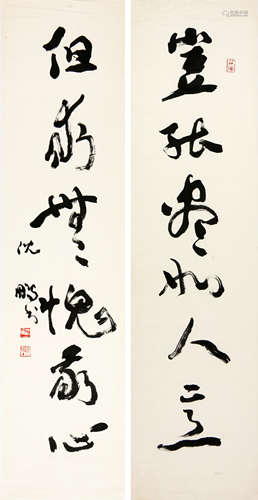 岂能尽如人意
但求无愧我心
沈鹏书